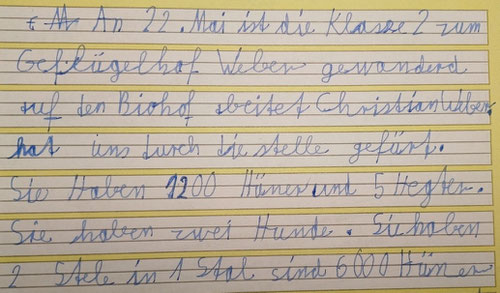 An 22. Mai ist die Klasse 2 zum
Geflügelhof Weber gewanderd
auf den Biohof abeitet Christian Weber.
hat uns durch die stelle gefürt.
Sie Haben 1200 Hüner und 5 Hegter.
Sie haben zwei Hunde. Sie haben
2 Stele in 1 Stal sind 6000 Hüner